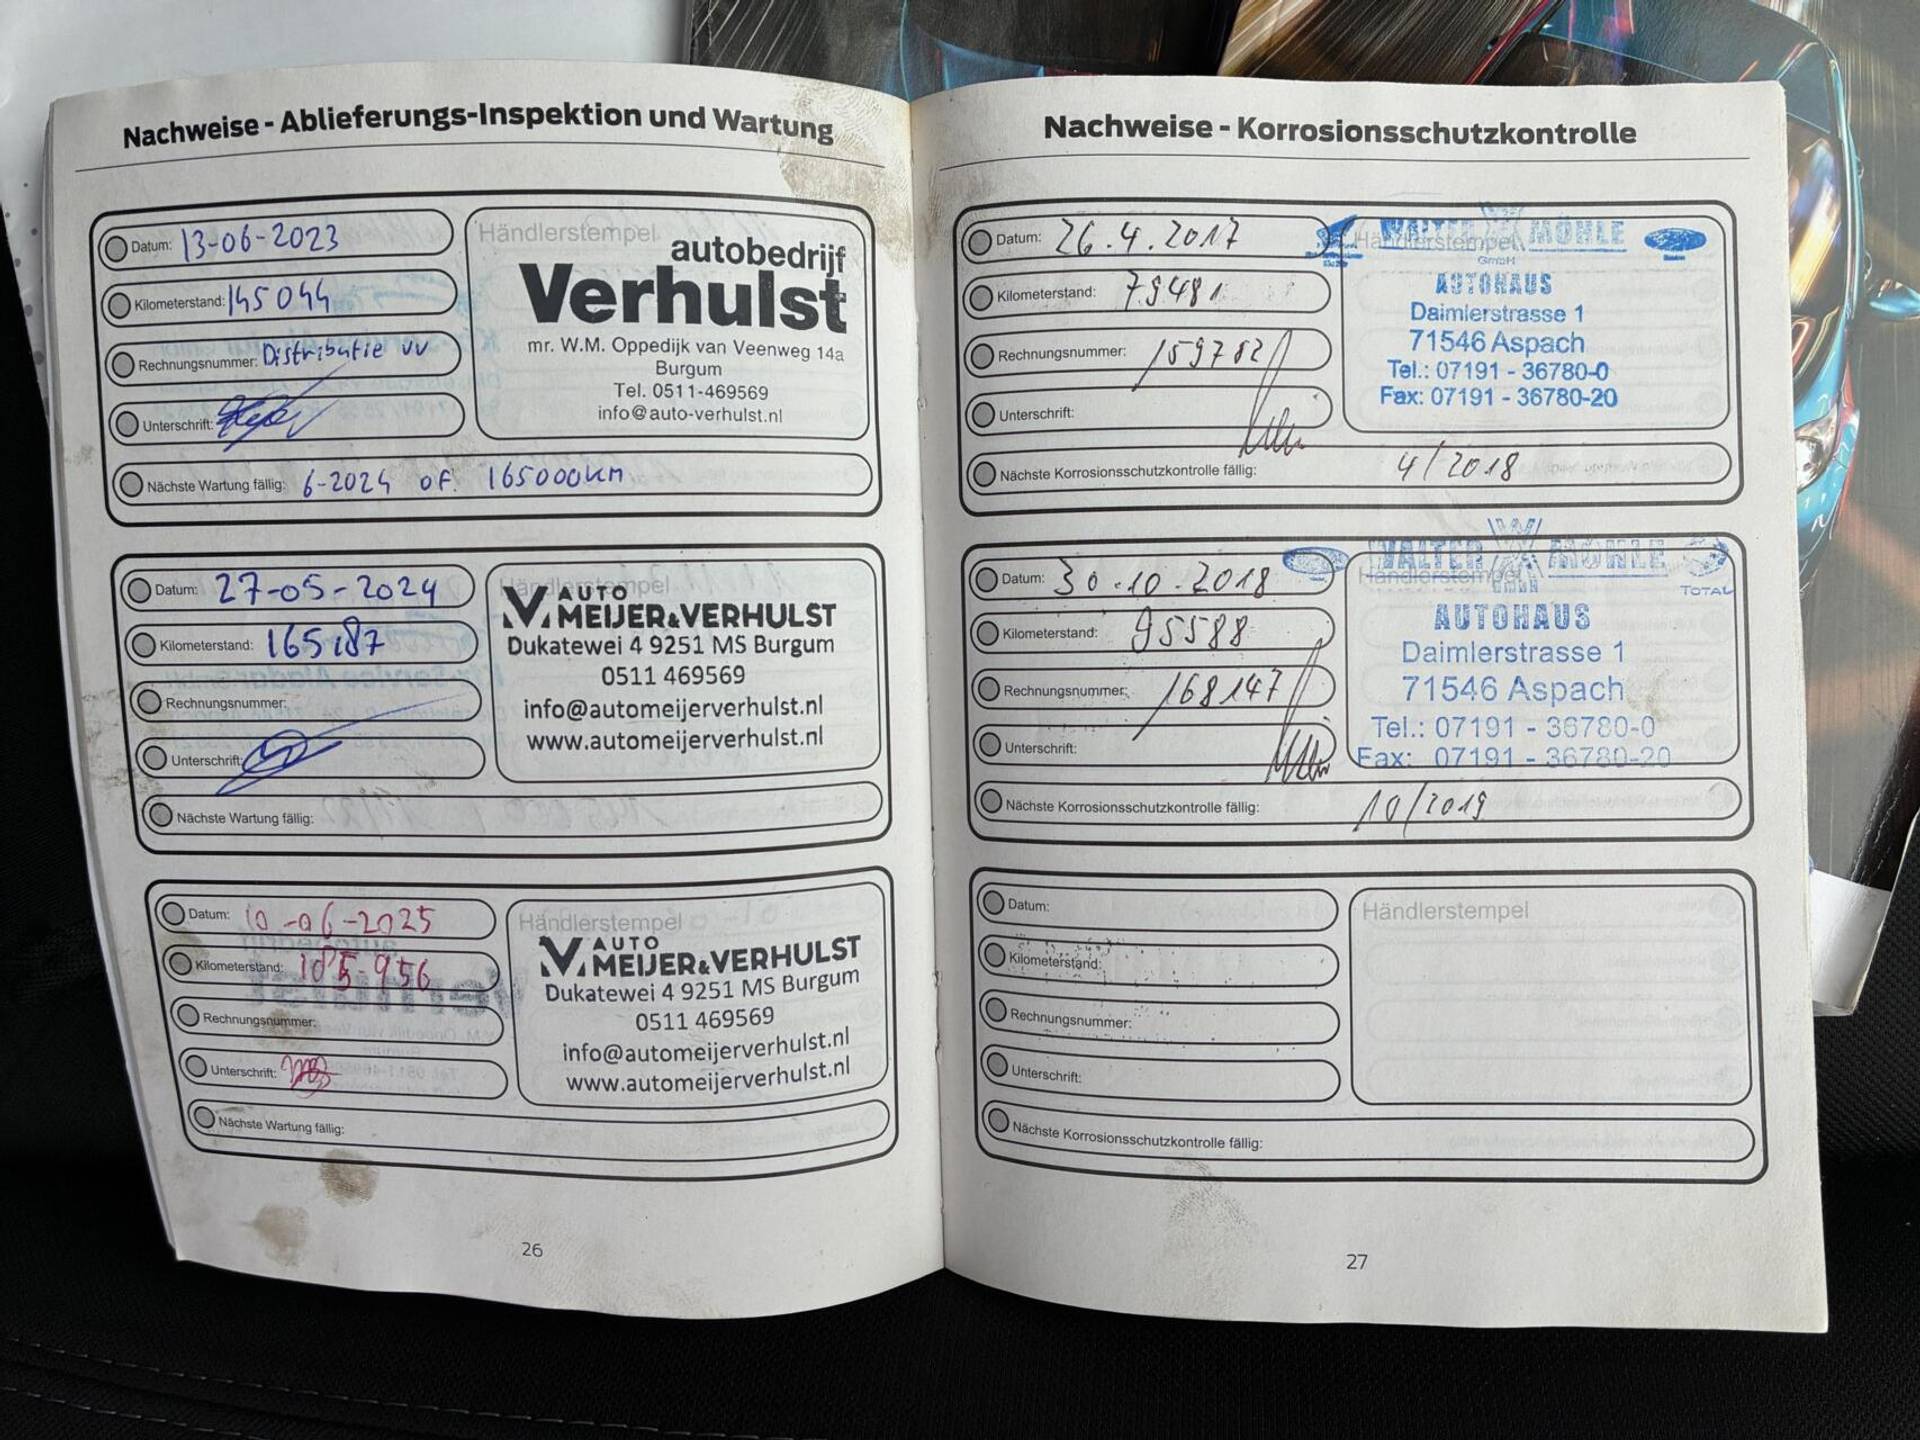 Nachweise - Ablieferungs-Inspektion und Wartung
Datum: 13-06-2023
Kilometerstand: 145044
Rechnungsnummer: Distributie vv
Unterschrift:
Nächste Wartung fällig: 6-2024 of. 165000km
Händlerstempel
autobedrijf
Verhulst
mr. W.M. Oppedijk van Veenweg 14a
Burgum
Tel. 0511-469569
info@auto-verhulst.nl
Datum: 27-05-2024
Kilometerstand: 165187
Rechnungsnummer:
Unterschrift:
Nächste Wartung fällig:
Händlerstempel
AUTO
MEIJER&VERHULST
Dukatewei 4 9251 MS Burgum
0511 469569
info@automeijerverhulst.nl
www.automeijerverhulst.nl
Datum: 10-06-2025
Kilometerstand: 185-956
Rechnungsnummer:
Unterschrift:
Nächste Wartung fällig:
Händlerstempel
AUTO
MEIJER&VERHULST
Dukatewei 4 9251 MS Burgum
0511 469569
info@automeijerverhulst.nl
www.automeijerverhulst.nl
26
Nachweise - Korrosionsschutzkontrolle
Datum: 26.4.2017
Kilometerstand: 79481
Rechnungsnummer: 159782
Unterschrift:
Nächste Korrosionsschutzkontrolle fällig: 4/2018
Händlerstempel
WALTER MÖHLE
GmbH
AUTOHAUS
Daimlerstrasse 1
71546 Aspach
Tel.: 07191 - 36780-0
Fax: 07191 - 36780-20
Datum: 30.10.2018
Kilometerstand: 95588
Rechnungsnummer: 168147
Unterschrift:
Nächste Korrosionsschutzkontrolle fällig: 10/2019
Händlerstempel
WALTER MÖHLE
TOTAL
AUTOHAUS
Daimlerstrasse 1
71546 Aspach
Tel.: 07191 - 36780-0
Fax: 07191 - 36780-20
Datum:
Kilometerstand:
Rechnungsnummer:
Unterschrift:
Nächste Korrosionsschutzkontrolle fällig:
Händlerstempel
27